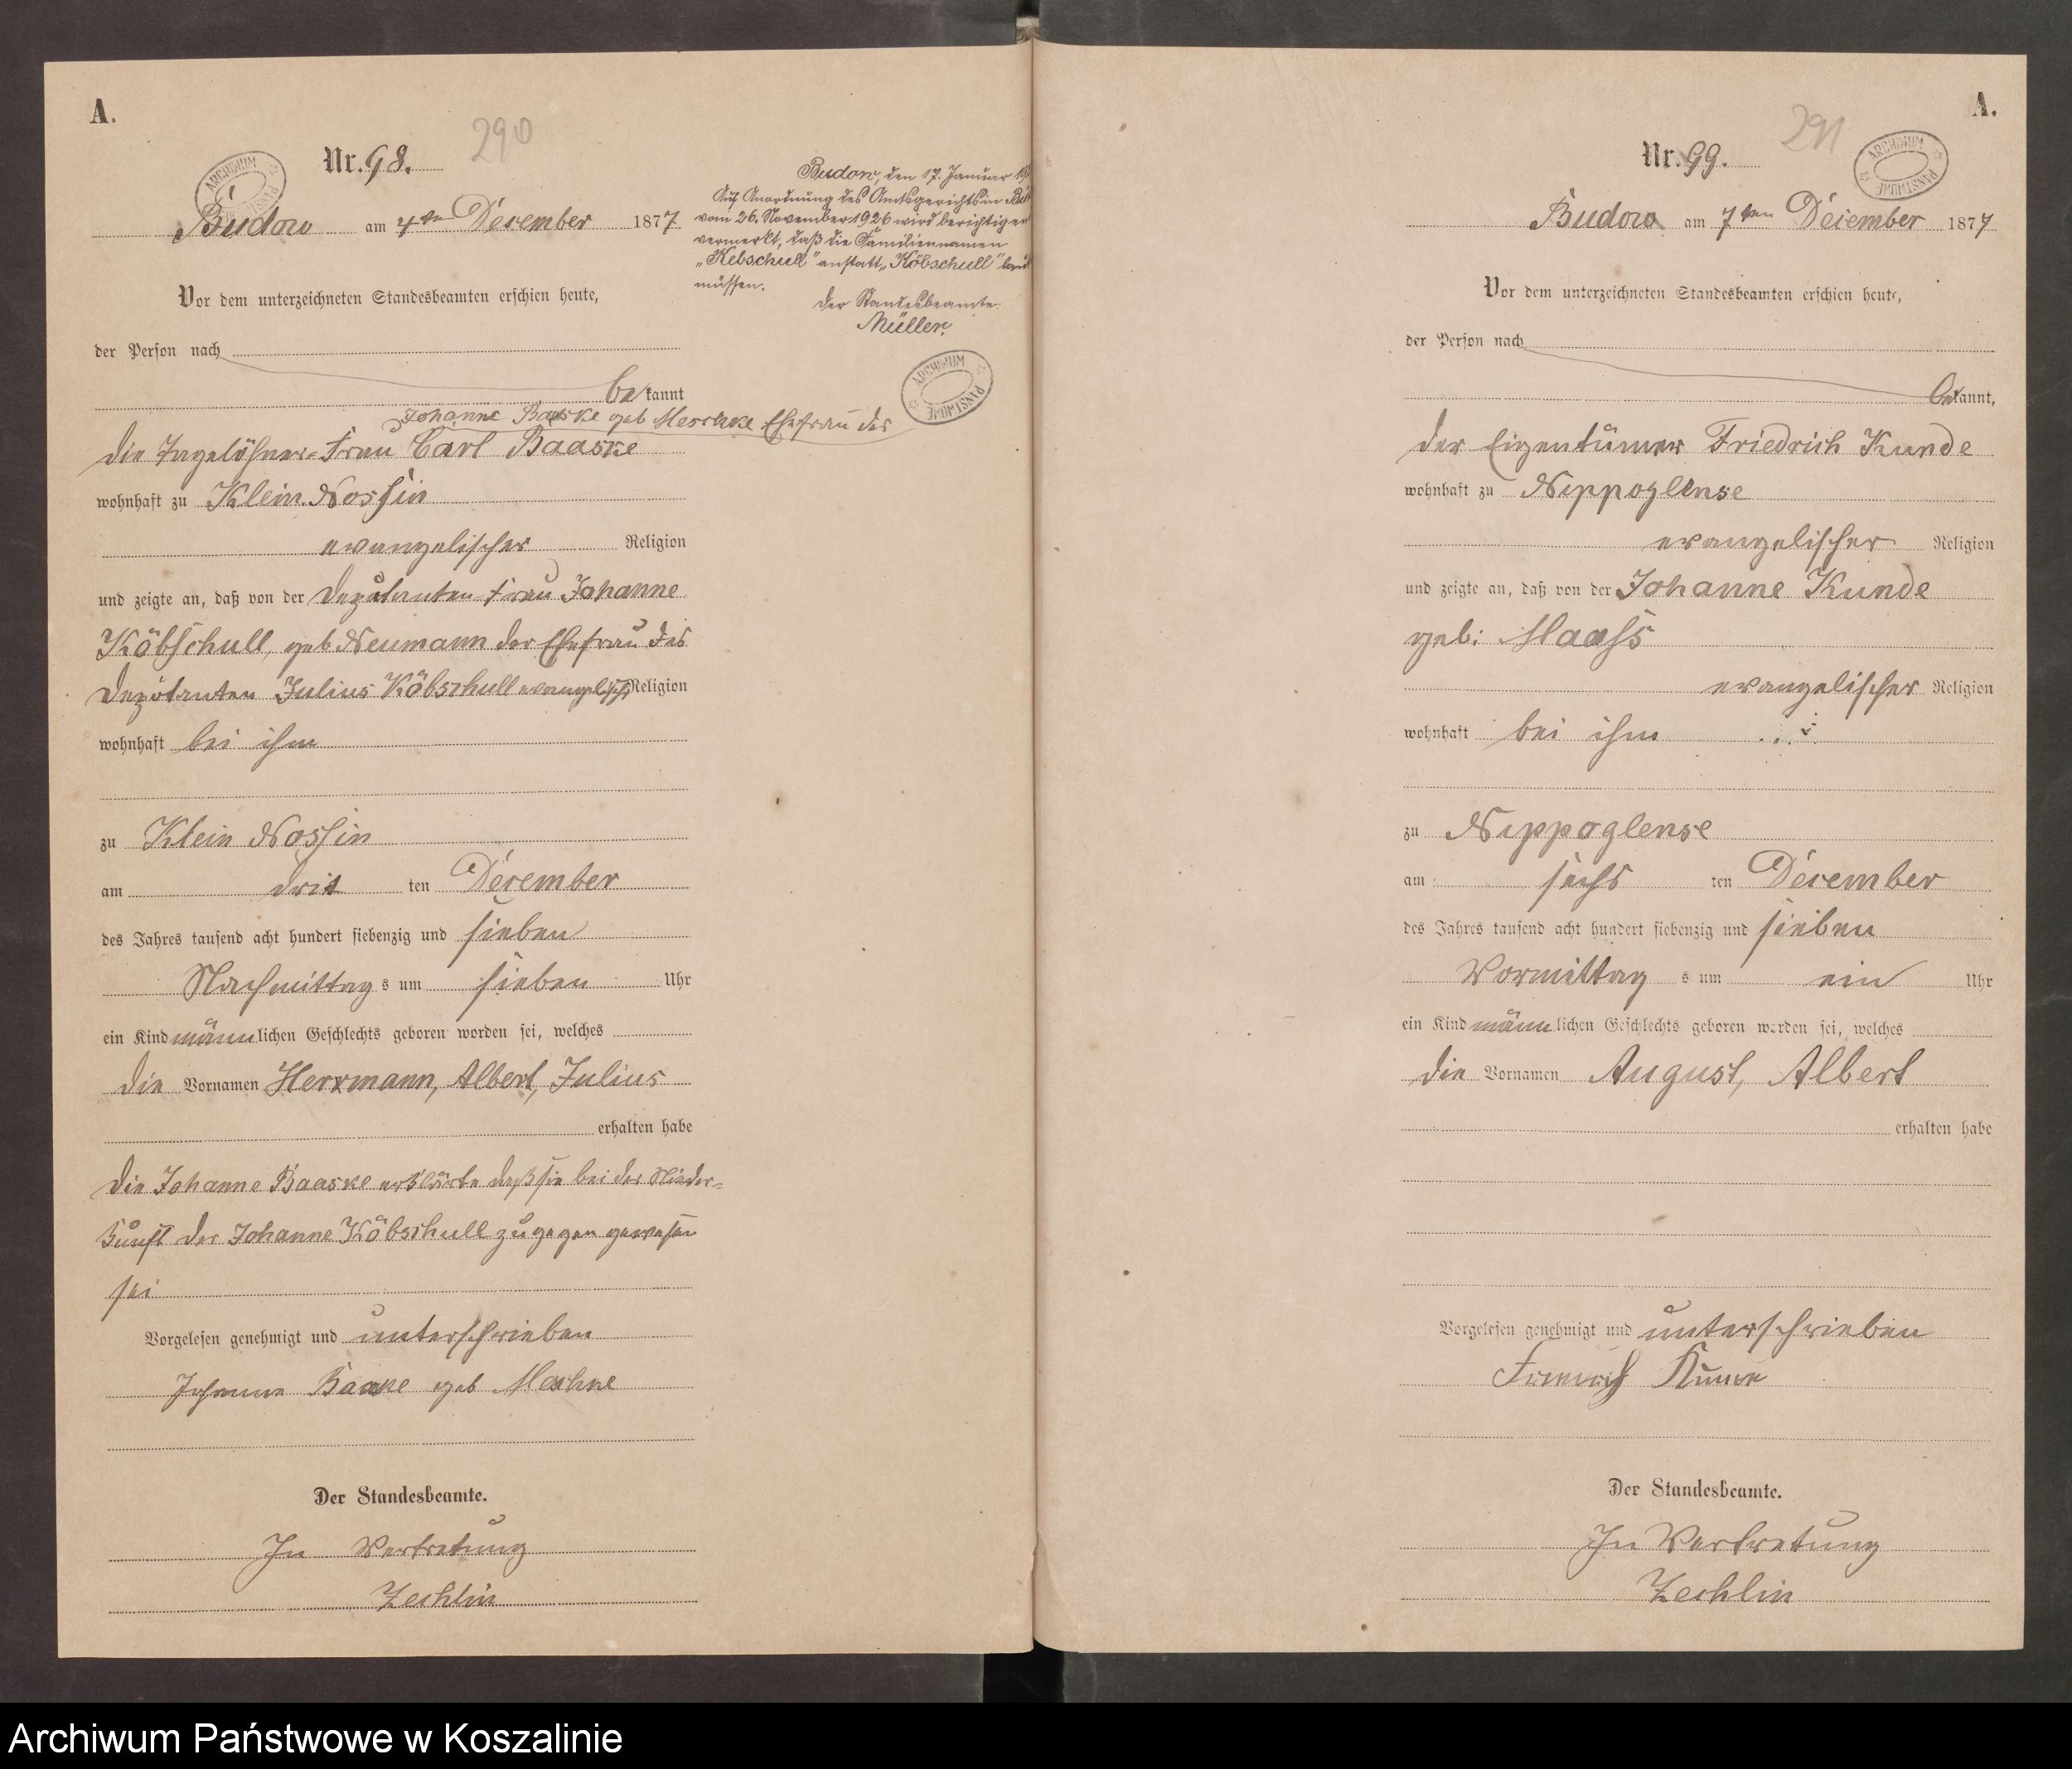 A.
Nr. 98.
290
ARCHIWUM PAŃSTWOWE
Budow am 4ten December 1877
Vor dem unterzeichneten Standesbeamten erschien heute,
der Person nach
bekannt
Johanne Baaske geb Ehefrau des
die Tagelöhner-Frau Carl Baaske
wohnhaft zu Klein Nossin
evangelischer Religion
und zeigte an, daß von der Deputanten Frau Johanne
Köbschull, geb Neumann der Ehefrau des
Deputanten Julius Köbschull evangelisch Religion
wohnhaft bei ihm
zu Klein Nossin
am drit ten December
des Jahres tausend acht hundert siebenzig und sieben
Nachmittags um sieben Uhr
ein Kind männlichen Geschlechts geboren worden sei, welches
die Vornamen Herrmann, Albert, Julius
erhalten habe
Die Johanne Baaske erklärte daß sie bei der Nieder=
kunft der Johanne Köbschull zugegen gewesen
sei
Vorgelesen genehmigt und unterschrieben
Johanne Baaske geb
Der Standesbeamte.
In Vertretung
Zechlin
Budow, den 17. Januar
Auf Anordnung des Amtsgerichts in
vom 26. November 1926 wird berichtigend
vermerkt, daß die Familiennamen
„Kebschull" anstatt „Köbschull"
müssen.
Der Standesbeamte:
Müller.
ARCHIWUM PAŃSTWOWE
A.
Nr. 99.
291
ARCHIWUM PAŃSTWOWE
Budow am 7ten December 1877
Vor dem unterzeichneten Standesbeamten erschien heute,
der Person nach
bekannt,
der Eigentümer Friedrich Kunde
wohnhaft zu Nippoglense
evangelischer Religion
und zeigte an, daß von der Johanne Kunde
geb: Maass
evangelischer Religion
wohnhaft bei ihm
zu Nippoglense
am sechs ten December
des Jahres tausend acht hundert siebenzig und sieben
Vormittags um ein Uhr
ein Kind männlichen Geschlechts geboren worden sei, welches
die Vornamen August, Albert
erhalten habe
Vorgelesen genehmigt und unterschrieben
Friedrich Kunde
Der Standesbeamte.
In Vertretung
Zechlin
Archiwum Państwowe w Koszalinie